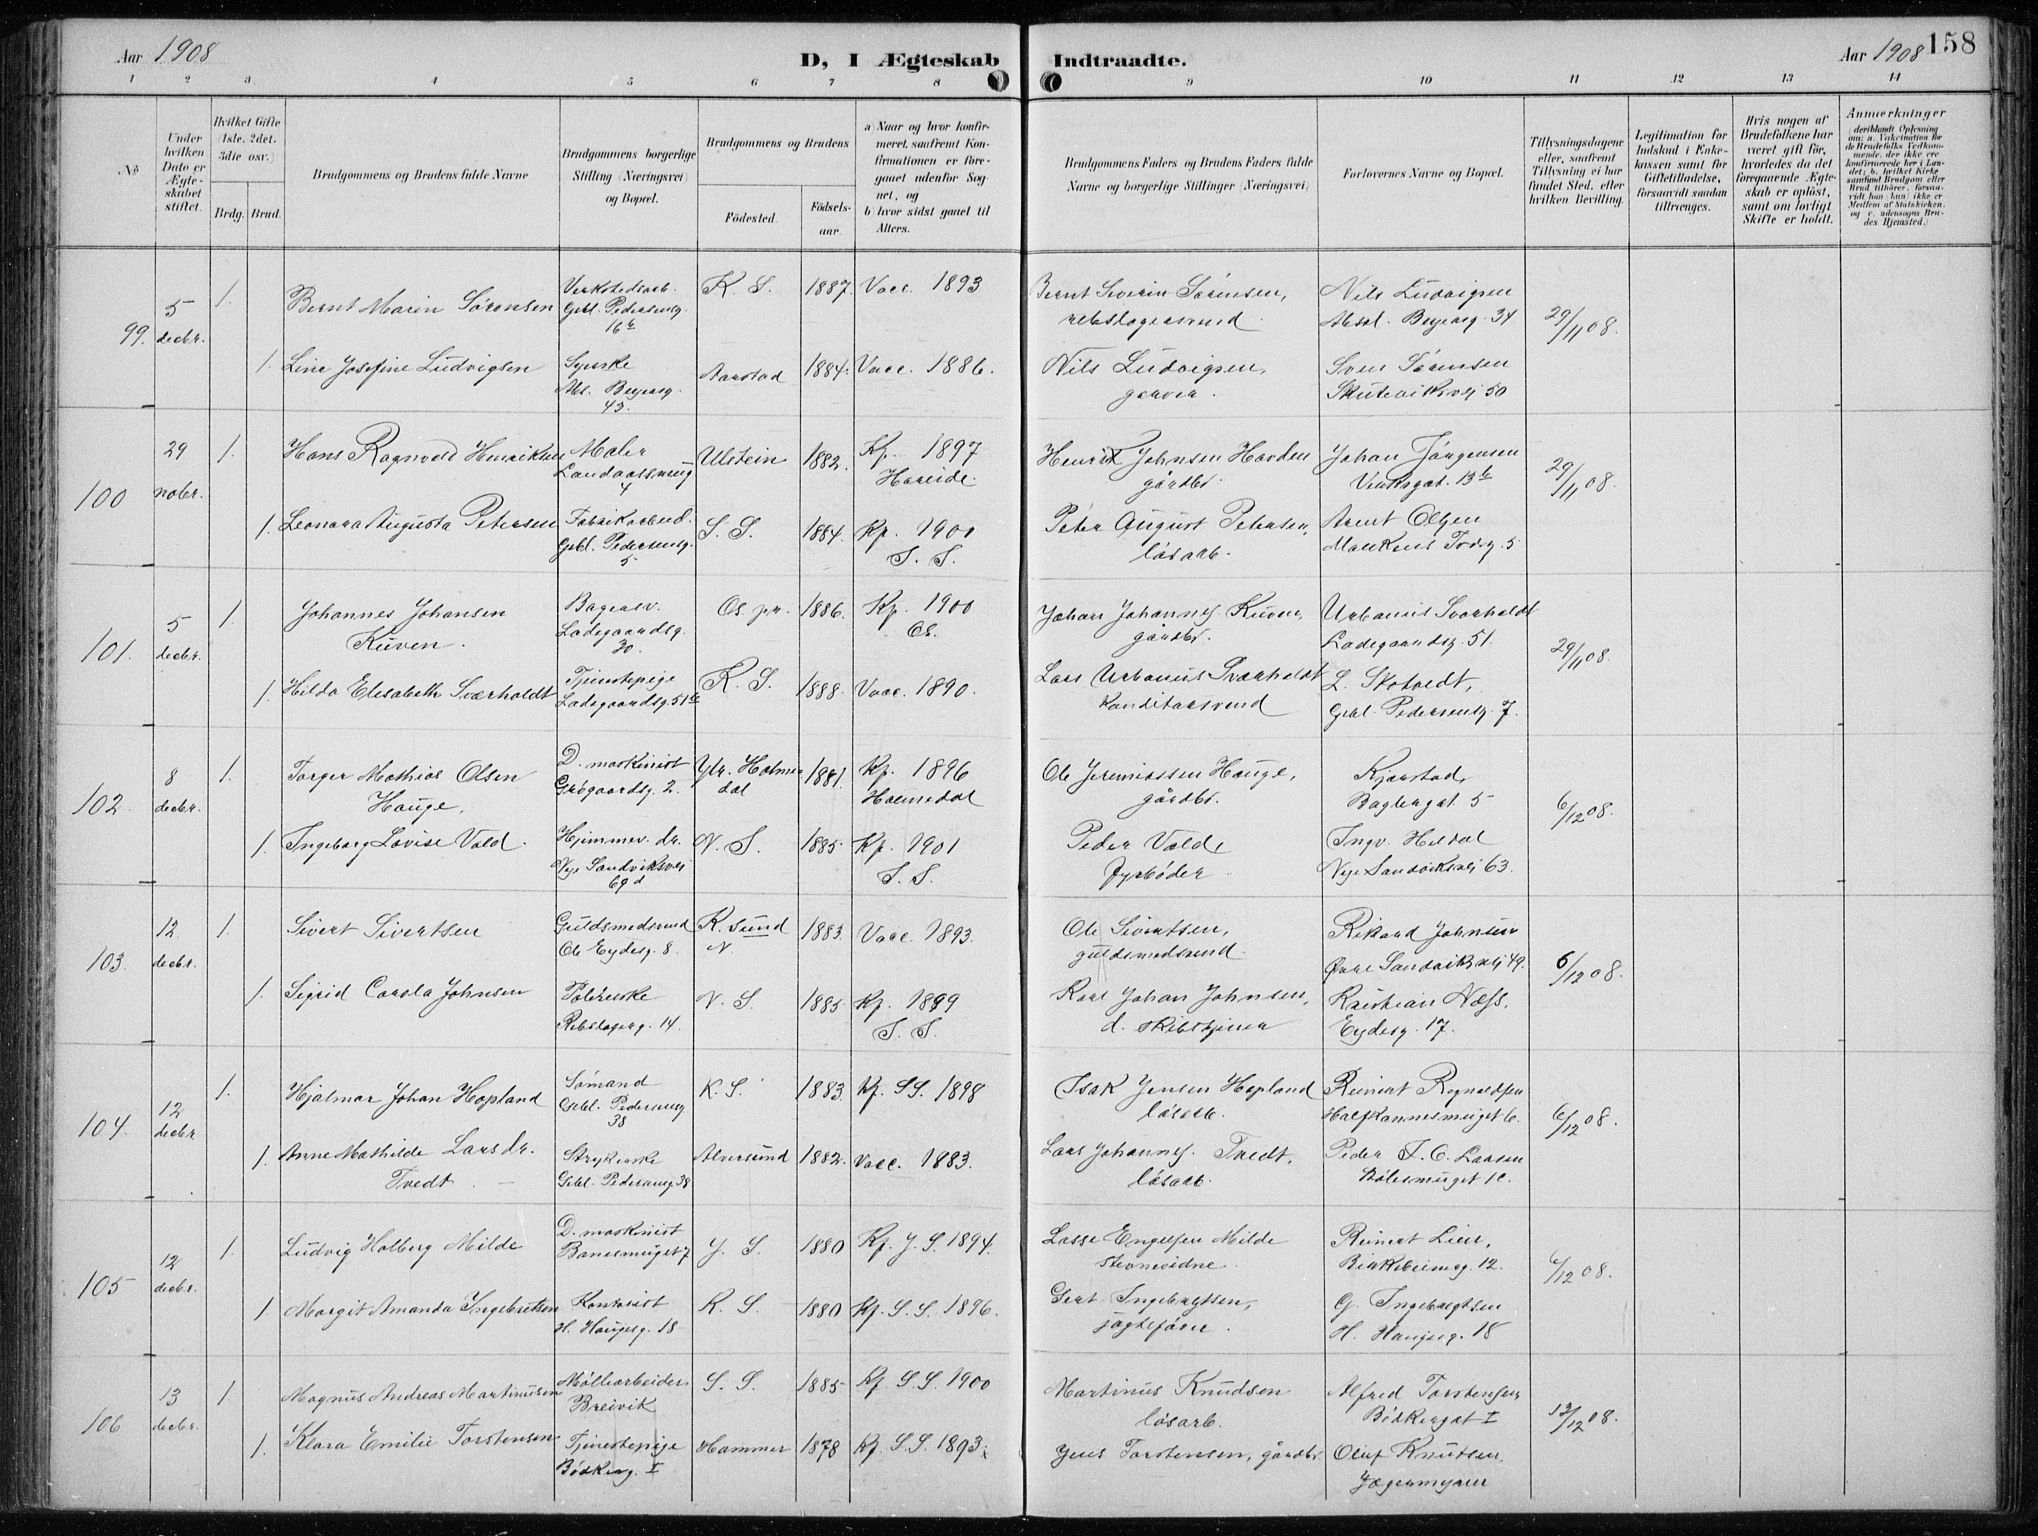 Aar 1908
D, I Ægteskab Indtraadte.
Aar 1908
158
1 2 3 4 5 6 7 8 9 10 11 12 13 14
No
Under hvilken Dato er Ægteskabet stiftet.
Hvilket Gifte (1ste, 2det, 3die osv.)
Brdg. Brud.
Brudgommens og Brudens fulde Navne
Brudgommens borgerlige Stilling (Næringsvei) og Bopæl.
Brudgommens og Brudens
Fødested. Fødselsaar.
a) Naar og hvor konfirmeret, saafremt Konfirmationen er foregaaet udenfor Sognet, og
b) hvor sidst gaaet til Alters.
Brudgommens Faders og Brudens Faders fulde Navne og borgerlige Stillinger (Næringsvei)
Forlovernes Navne og Bopæl.
Tillysningsdagene eller, saafremt Tillysning ei har fundet Sted, efter hvilken Bevilling.
Legitimation for Indskud i Enkekassen samt for Giftetilladelse, forsaavidt saadan tiltrænges.
Hvis nogen af Brudefolkene har været gift før, hvorledes da det foregaaende Ægteskab er opløst, samt om lovligt Skifte er holdt.
Anmærkninger
99. 5 decbr. 1. Bernt Marin Sørensen Verkstedsarb. Gebl. Pedersensg. 16b K. S. 1887. Vacc. 1893 Bernt Severin Sørensen, rebslagersvend. Nils Ludvigsen Absal. Beyersg. 34 29/11 08.
1. Line Josefine Ludvigsen Syerske Abs. Beyersg. 43. Aarstad 1884. Vacc. 1886. Nils Ludvigsen, garver. Sven Sørensen Skutevikvei 50
100 29 nobr. 1. Hans Ragnvald Henriksen Maler Landaassmug 4 Ulstein 1882. Kp. 1897 Hareide. Henrik Johnsen Havden gårdbr. Johan Jørgensen 13b 29/11 08.
1. Leonora Augusta Petersen Fabrikarbeid. Gebl. Pedersensg. 5 S. S. 1884. Kp. 1900 S. S. Peter August Petersen, løsarb. Arent Olsen 5
101. 5 decbr. 1. Johannes Johansen Kuven. Bagersv. Ladegaardsg. 30. Os pr. 1886. Kp. 1900 Os. Johan Johannes. Kuven, gårdbr. Urbanus Sværholdt Ladegaardsg. 51. 29/11 08.
1. Hilda Elisabeth Sværholdt Tjenestepige Ladegaardsg. 51b K. S. 1888. Vacc. 1890. Lars Urbanus Sværholdt Konditorsvend L. Skotvedt, Gebl. Pedersensg. 7.
102. 8 decbr. 1. Torger Mathias Olsen Hauge. D. maskinist Grøgaardsg. 2. Ytr. Holmedal 1881. Kp. 1896 Holmedal Ole Jeremiassen Hauge, gårdbr. Kjerstad, Baglergat. 5 6/12 08.
1. Ingeborg Lovise Vold. Hjemmev. dr. Nye Sandviksvei 69d N. S. 1885. Kp. 1901 S. S. Peder Vold, fyrbøder. Ingv. Heldal Nye Sandviksvei 63.
103. 12 decbr. 1. Sivert Sivertsen Guldsmedsvend Ole Eydesg. 8. K. sund N. 1883. Vacc. 1893. Ole Sivertsen, guldsmedsvend. Rikard Johnsen Øvre Sandviksvei 49. 6/12 08.
1. Sigrid Carola Johnsen Polererske Rebslagerg. 14. N. S. 1885 Kp. 1899 S. S. Karl Johan Johnsen, d. skibstjener Kristian Næss, Eydesg. 17.
104. 12 decbr 1. Hjalmar Johan Hopland Sømand Gebl. Pedersensg 38 K. S. 1883. Kp. S S. 1898 Isak Jensen Hopland løsarb. Reinert Ragnvaldsen Halfkannesmuget 6. 6/12 08.
1. Anne Mathilde Larsdr. Tvedt. Strykerske Gebl. Pedersensg. 38 Alversund 1882. Vacc. 1883. Lars Johannes. Tvedt, løsarb. Peder J. C. Larsen Bølesmuget 1c.
105 12 decbr. 1. Ludvig Holberg Milde D. maskinist Banesmuget 7 J. S. 1880 Kp. J. S. 1894. Lasse Engelsen Milde stevnevidne. Reinert Lien, Birkebeinerg. 12. 6/12 08.
1. Margit Amanda Ingebrigtsen Kontorist H. Haugesg. 18 K. S. 1880 Kp. S. S. 1896. Gert Ingebrigtsen, jagtefører. G. Ingebrigtsen H. Haugesg. 18
106 13 decbr. 1. Magnus Andreas Martinusen Møllearbeider Breivik S. S. 1885 Kp. S. S. 1900 Martinus Knudsen løsarb. Alfred Torstensen Bødkergat I 13/12 08.
1. Klara Emilie Torstensen Tjenestepige Bødkerg. I Hammer 1878 Kp. S. S. 1893. Jens Torstensen, gårdbr. Oluf Knutsen, Jægermyren